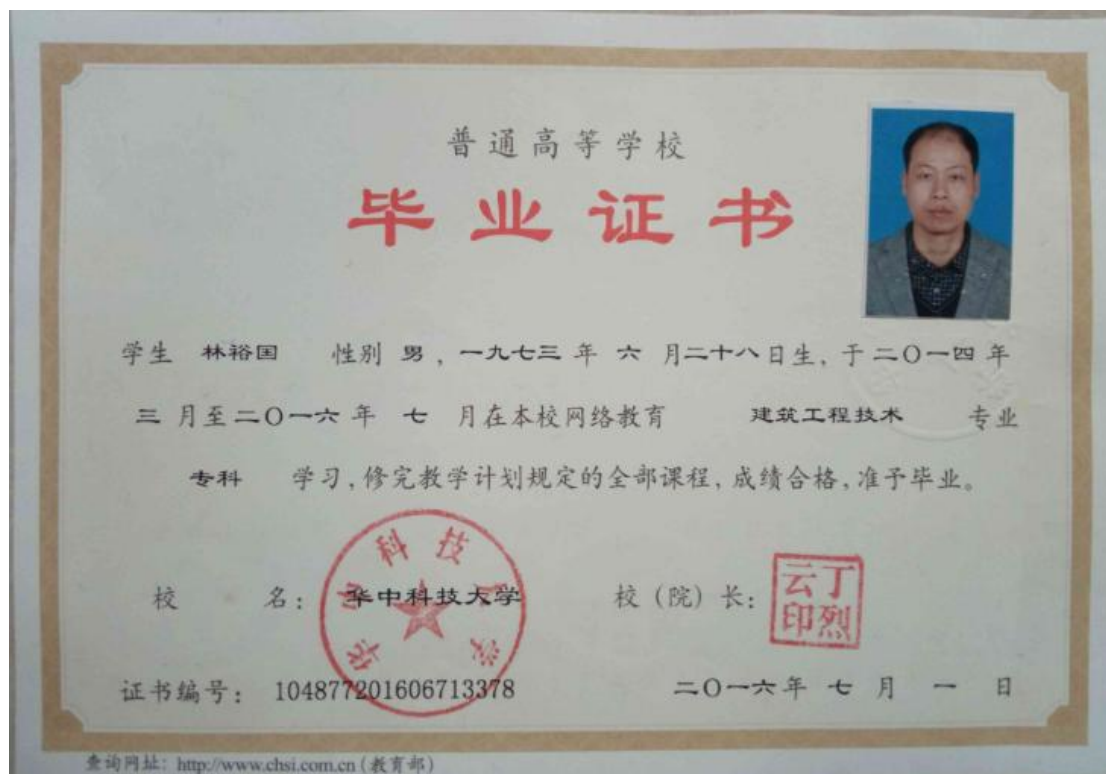 普通高等学校
毕业证书
学生 林裕国 性别 男，一九七三 年 六 月二十八日生，于二〇一四 年
三 月至二〇一六 年 七 月在本校网络教育 建筑工程技术 专业
专科 学习，修完教学计划规定的全部课程，成绩合格，准予毕业。
校 名： 华中科技大学 校（院）长：
华中科技大学
丁烈云印
证书编号： 104877201606713378 二〇一六年 七 月 一 日
查询网址：http://www.chsi.com.cn（教育部）